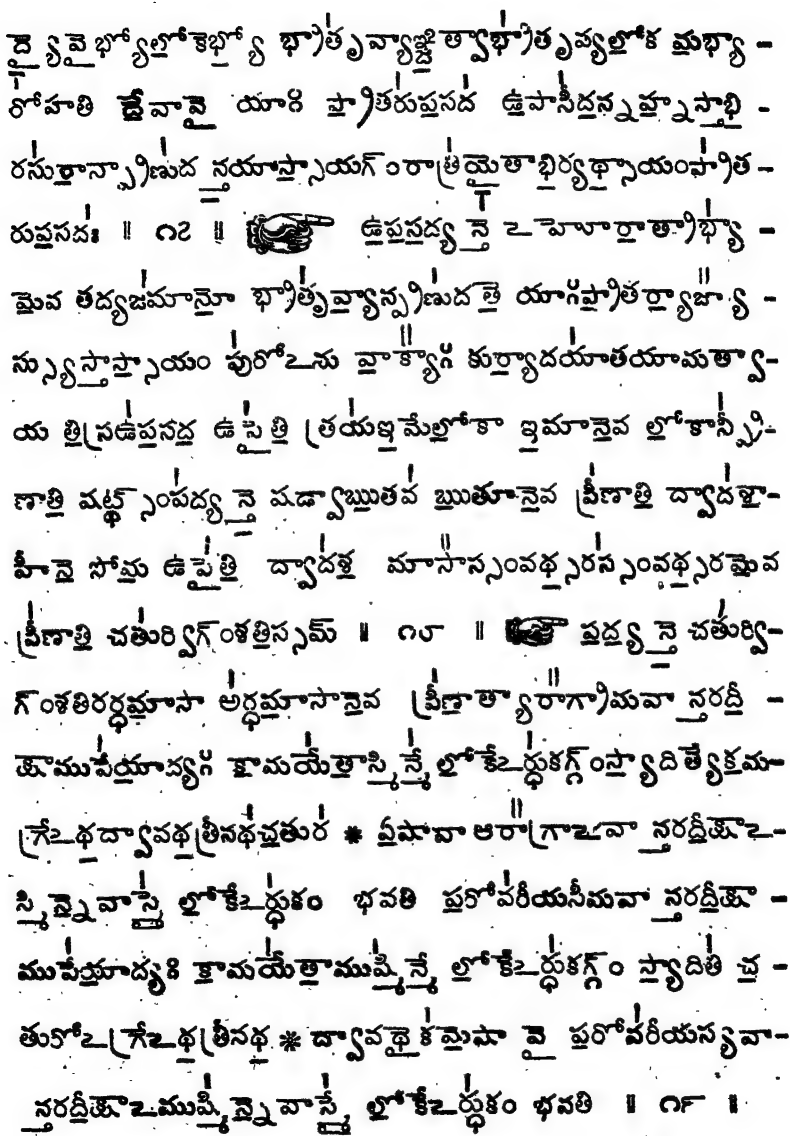 ద్యైవైభ్యోలోకేభ్యో భ్రాతృవ్యాఞ్జిత్వాభ్రాతృవ్యలోక మభ్యా -
రోహతి దేవావై యాః ప్రాతరుపసద ఉపాసీదన్నహ్నస్తాభి -
రసురాన్ప్రాణుద న్తయాస్సాయగ్ంరాత్రియైతాభిర్యథ్సాయంప్రాత -
రుపసదః ॥ ౧౭ ॥ ఉపసద్య న్తే ఽ హోరాత్రాభ్యా -
మేవ తద్యజమానో భ్రాతృవ్యాన్ప్రణుద తే యాఃప్రాతర్యాజ్యా -
స్స్యుస్తాస్సాయం పురోఽను వాక్యాః కుర్యాదయాతయామత్వా-
య తిస్రఉపసద ఉపైతి త్రయఇమేలోకా ఇమానేవ లోకాన్ప్రీ-
ణాతి షట్థ్సంపద్య న్తే షడ్వాఋతవ ఋతూనేవ ప్రీణాతి ద్వాదశా-
హీనే సోమ ఉపైతి ద్వాదశ మాసాస్సంవథ్సరస్సంవథ్సరమేవ
ప్రీణాతి చతుర్విగ్ంశతిస్సమ్ ॥ ౧౮ ॥ పద్య న్తే చతుర్వి-
గ్ంశతిరర్ధమాసా అర్ధమాసానేవ ప్రీణాత్యారాగ్రామవా న్తరదీ -
క్షాముపేయాద్యః కామయేతాస్మిన్మే లోకేఽర్ధుకగ్గ్ంస్యాదిత్యేకమ-
గ్రేఽథద్వావథత్రీనథచతుర * ఏషావా ఆరాగ్రాఽవా న్తరదీక్షాఽ-
స్మిన్నేవాస్మై లోకేఽర్ధుకం భవతి పరోవరీయసీమవా న్తరదీక్షా -
ముపేయాద్యః కామయేతాముష్మిన్మే లోకేఽర్ధుకగ్గ్ం స్యాదితి చ -
తురోఽగ్రేఽథత్రీనథ * ద్వావథైకమేషా వై పరోవరీయస్యవా-
న్తరదీక్షాఽముష్మిన్నేవాస్మై లోకేఽర్ధుకం భవతి ॥ ౧౯ ॥